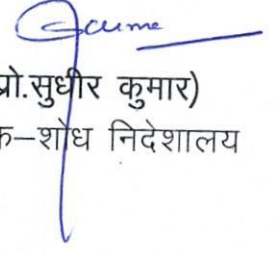 प्रो.सुधीर कुमार)
क–शोध निदेशालय